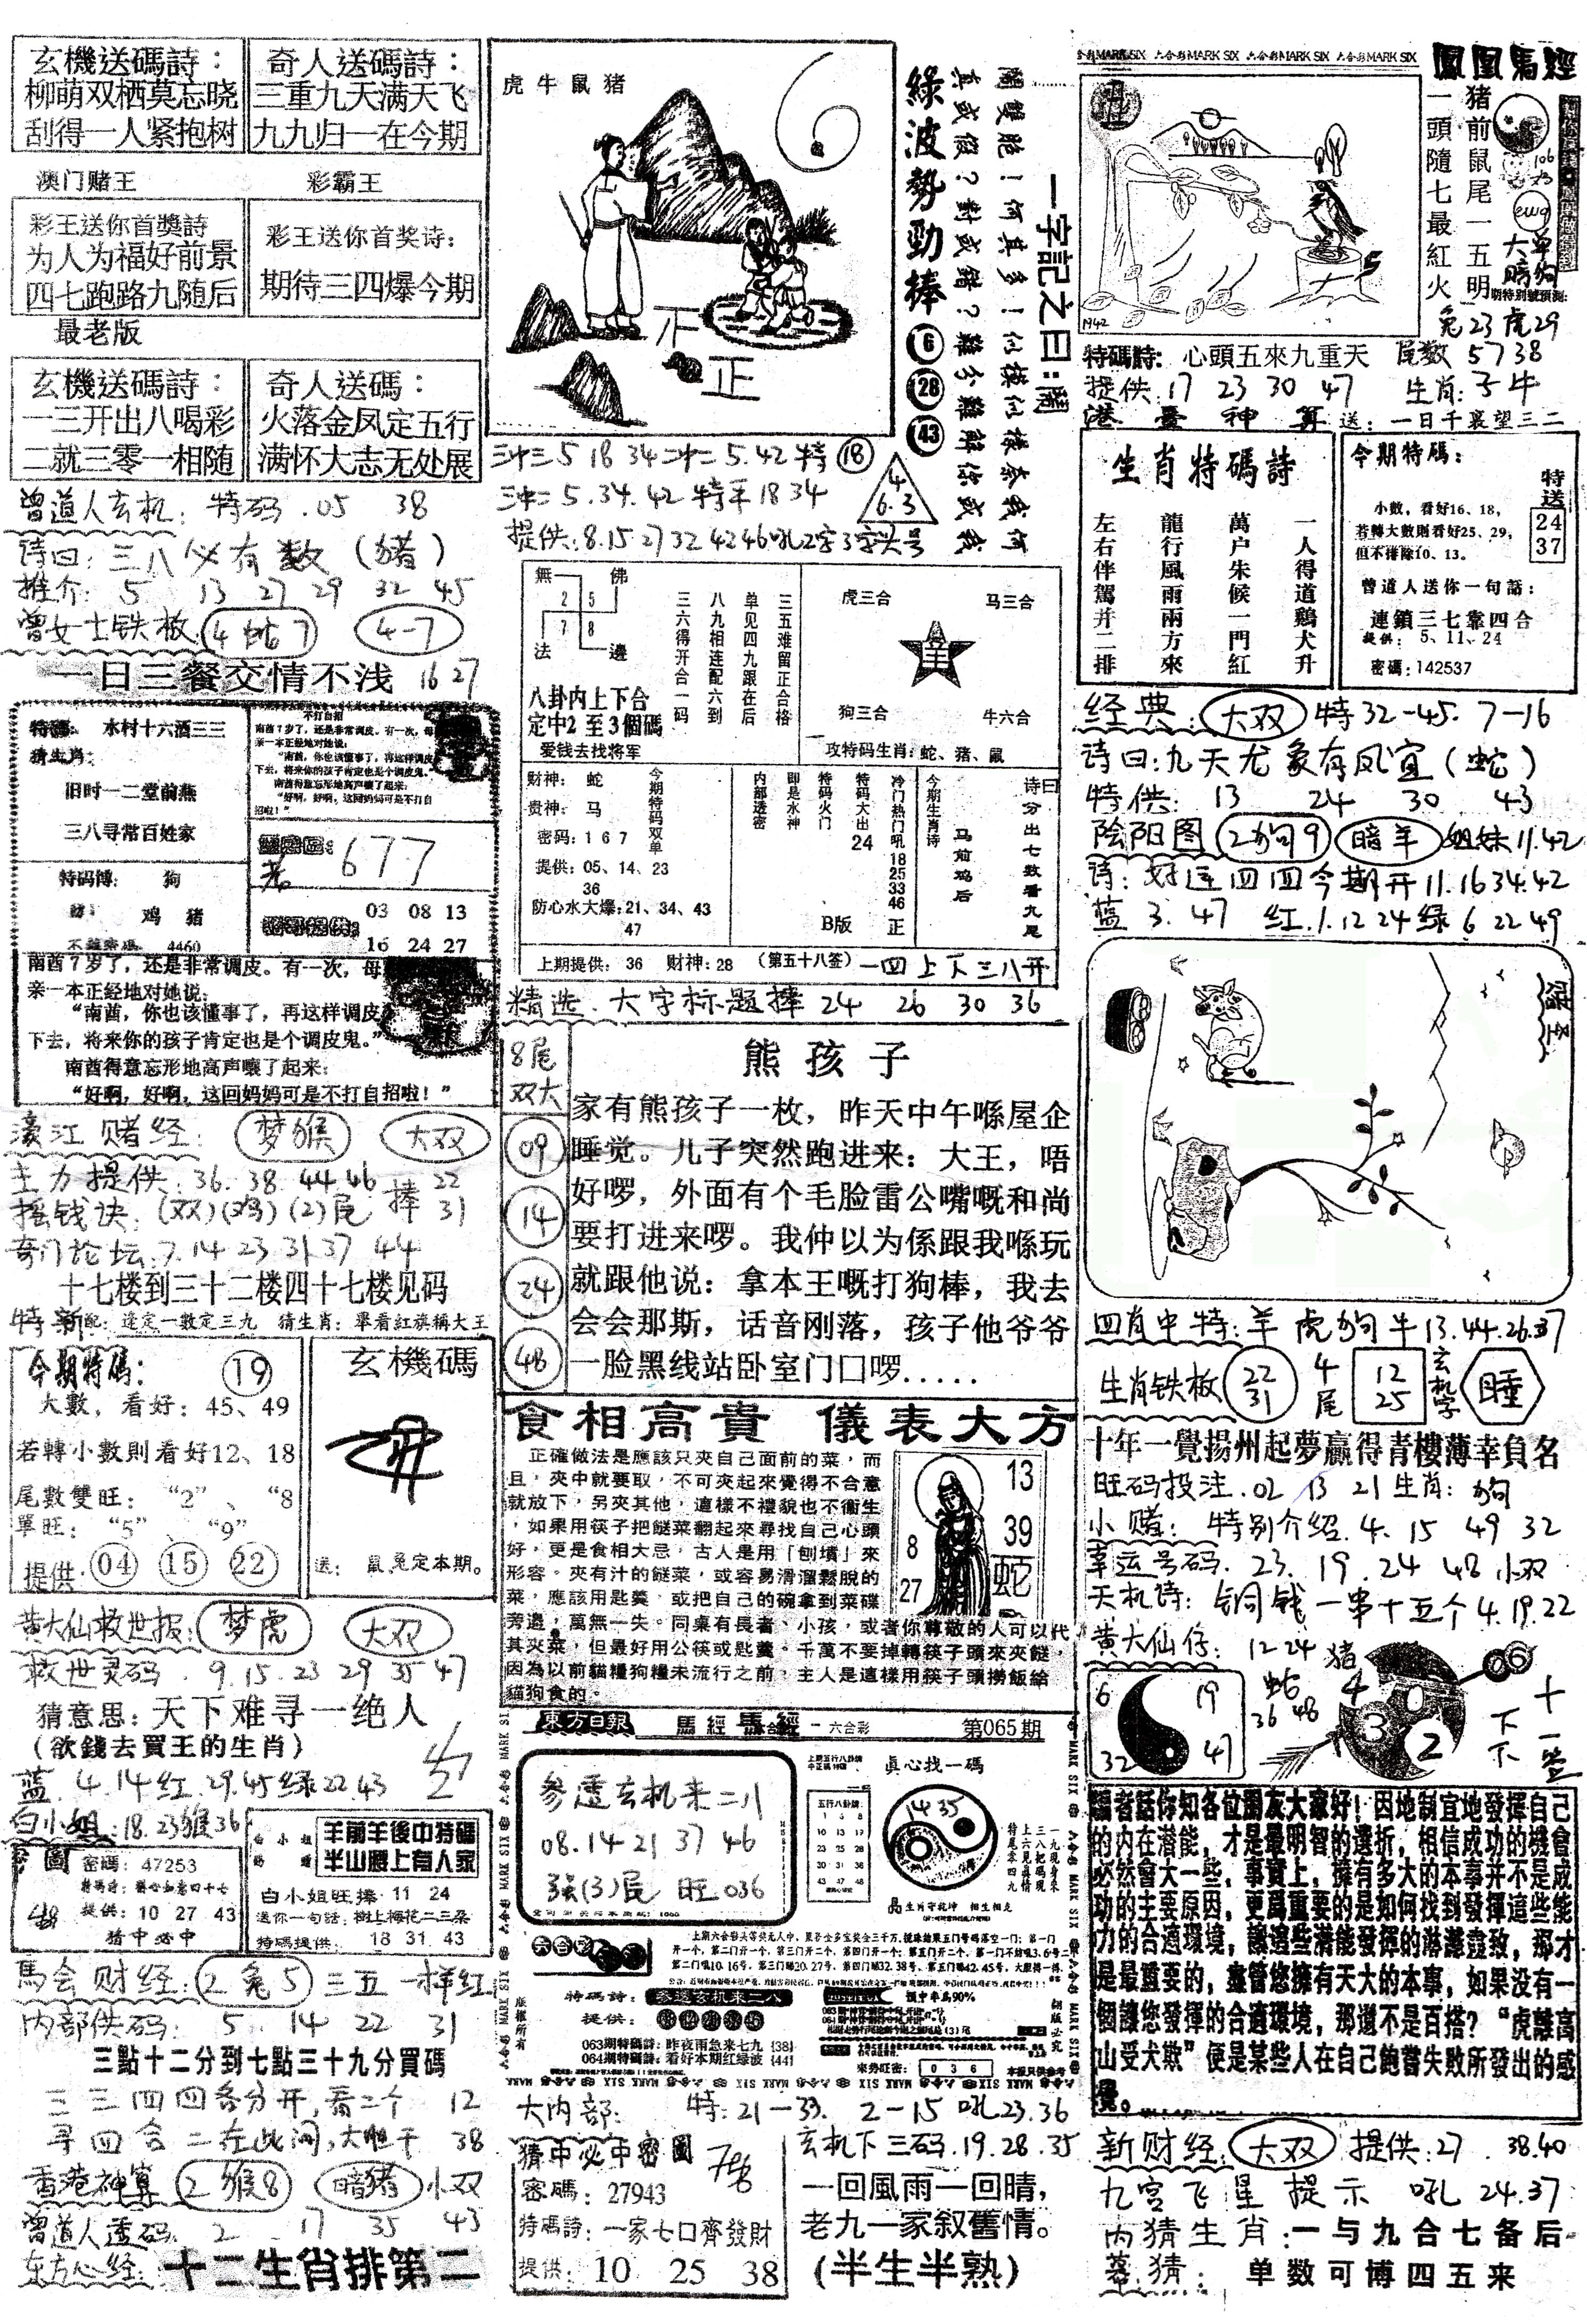 玄機送碼詩：
柳萌双栖莫忘晓
刮得一人紧抱树
奇人送碼詩：
三重九天满天飞
九九归一在今期
澳门赌王
彩霸王
彩王送你首獎詩
为人为福好前景
四七跑路九随后
彩王送你首奖诗：
期待三四爆今期
最老版
玄機送碼詩：
一三开出八喝彩
二就三零一相随
奇人送碼：
火落金凤定五行
满怀大志无处展
曾道人玄机：特码.05 38
诗曰：三八必有数（猪）
推介：5 13 27 29 32 45
曾女士铁板 4蛇7 4-7
一日三餐交情不浅 16 27
特碼：水村十六酒三三
猜生肖：
旧时一二堂前燕
三八寻常百姓家
特码博：狗
鸡 猪
4460
不打自招
677
03 08 13
16 24 27
南茜7岁了，还是非常调皮。有一次，母
亲一本正经地对她说：
“南茜，你也该懂事了，再这样调皮
下去，将来你的孩子肯定也是个调皮鬼。”
南茜得意忘形地高声嚷了起来：
“好啊，好啊，这回妈妈可是不打自招啦！”
濠江赌经：梦猴 大双
主力提供：36.38.44.46 棒 22
摇钱诀：(双)(鸡)(2)尾 31
奇门论坛.7.14 23 31 37 44
十七楼到三十二楼四十七楼见码
特新 配：達定一數定三九 猜生肖：單看紅旗稱大王
今期特碼： 19
大數，看好：45、49
若轉小數則看好12、18
尾數雙旺：“2”、“8
單旺：“5”、“9”
提供 04 15 22
玄機碼
送：鼠兔定本期。
黄大仙救世报：梦虎 大双
救世灵码.9.15.23 29 35 47
猜意思：天下难寻一绝人
（欲錢去買王的生肖）
蓝.4.14红.29.45绿22.43
白小姐：18.23猴36
密圖
密碼：47253
提供：10 27 43
猜中必中
羊前羊後中特碼
半山腰上有人家
白小姐旺捧 11 24
送你一句話：樹上梅花二三朵
特碼提供：18 31. 43
馬会财经：2兔5 三五一样红
内部供码：5. 14 22 31
三點十二分到七點三十九分買碼
三三四四各分开，看二个 12
寻四合二在此间，大胆干 38
香港神算 2猴8 暗猪 小双
曾道人透码 2 17 35 43
东方心经：十二生肖排第二
虎牛鼠猪
不
正
綠波勢勁棒
6
28
43
一字記之曰：鬧
鬧雙胞！何其多！似模似樣奈我何
真或假？對或錯？難分難解你或我
三冲三5 18 34二冲二5.42特 18
三冲二5.34.42特平18 34
4
6.3
提供：8.15 27 32 42 46吼2字3字头号
無 佛
2 5
7 8
法 邊
八卦内上下合
定中2至3個碼
爱钱去找将军
三五难留正合格
单见四九跟在后
八九相连配六到
三六得开合一码
虎三合 马三合
羊
狗三合 牛六合
攻特码生肖：蛇、猪、鼠
财神：蛇
贵神：马
密码：1 6 7
提供：05、14、23
36
防心水大爆：21、34、43
47
今期特码双单
内部透密
即是水神
特码火门
特码大出
24
冷门热门吼
18
25
33
46
今期生肖诗
马前鸡后
诗曰
分出七数看九尾
B版
正
上期提供：36 财神：28 （第五十八签）一四上下三八开
精选.大字标题捧 24 26 30 36
8尾
双大
09
14
24
48
熊孩子
家有熊孩子一枚，昨天中午喺屋企
睡觉。儿子突然跑进来：大王，唔
好啰，外面有个毛脸雷公嘴嘅和尚
要打进来啰。我仲以为係跟我喺玩
就跟他说：拿本王嘅打狗棒，我去
会会那斯，话音刚落，孩子他爷爷
一脸黑线站卧室门口啰.....
食相高貴 儀表大方
正確做法是應該只夾自己面前的菜，而
且，夾中就要取，不可夾起來覺得不合意
就放下，另夾其他，這樣不禮貌也不衛生
，如果用筷子把餸菜翻起來尋找自己心頭
好，更是食相大忌，古人是用「刨墳」來
形容。夾有汁的餸菜，或容易滑溜鬆脫的
菜，應該用匙羹，或把自己的碗拿到菜碟
旁邊，萬無一失。同桌有長者、小孩，或者你尊敬的人可以代
其夾菜，但最好用公筷或匙羹。千萬不要掉轉筷子頭來夾餸，
因為以前貓糧狗糧未流行之前，主人是這樣用筷子頭撈飯給
貓狗食的。
13
39
8
27
蛇
東方日報 馬經 六合彩 第065期
参透玄机来二八
08.14 21 37 46
强(3)尾 旺036
真心找一碼
14 35
五行八卦牌
生肖守乾坤 相生相走
六合彩
特碼詩：参透玄机来二八
提供：
063期特碼詩：昨夜雨急来七九 {38}
064期特碼詩：看好本期红绿波 {44}
版權所有
翻版必究
來券旺密：0 3 6
大内部： 特：21-33. 2-15 吼23.36
猜中必中密圖
密碼：27943
特碼詩：一家七口齊發財
提供：10 25 38
玄机下三码.19.28.35
一回風雨一回晴，
老九一家叙舊情。
(半生半熟)
六合彩MARK SIX 六合彩MARK SIX 六合彩MARK SIX 六合彩MARK SIX
1942
鳳凰馬經
猪前鼠尾一五明
一頭隨七最紅火
大单
暗狗
兔23虎29
特碼詩：心頭五來九重天 尾数5738
提供：17 23 30 47 生肖：子牛
港臺神算 送：一日千裏望三二
生肖特碼詩
一人得道鷄犬升
萬户朱候一門紅
龍行風雨兩方來
左右伴駕并二排
今期特碼：
小數，看好16、18，
若轉大數則看好25、29，
但不排除10、13。
特送
24
37
曾道人送你一句話：
連鎖三七靠四合
提供：5、11、24
密碼：142537
经典：大双 特32-45. 7-16
诗曰：九天龙象有凤宜（蛇）
特供：13 24 30 43
阴阳图 2狗9 暗羊 姐妹11.42
诗：好运四四今期开11.16 34.42
蓝 3.47 红.1.12 24绿6 22 49
赌圣
四肖中特：羊虎狗牛13.44.26.37
生肖铁板 22 31 4尾 12 25 玄机字 睡
十年一覺揚州起夢贏得青樓薄幸負名
旺码投注.02 13 21生肖：狗
小赌：特别介绍.4.15 49 32
幸运号码.23.19.24 48小双
天机诗：铜钱一串十五个4.19.22
黄大仙仔：12 24 猪 4
6 19
32 47
蛇
36 48
0
3
2
06
十一签
下下
騙者話你知各位朋友大家好！因地制宜地發揮自己
的内在潜能，才是最明智的選折，相信成功的機會
必然會大一些，事實上，擁有多大的本事并不是成
功的主要原因，更爲重要的是如何找到發揮這些能
力的合適環境，讓這些潜能發揮的淋灕盡致，那才
是最重要的，盡管您擁有天大的本事，如果没有一
個讓您發揮的合適環境，那還不是百搭？“虎離高
山受犬欺”便是某些人在自己飽嘗失敗所發出的感
覺。
新财经：大双 提供：27. 38.40
九宫飞星提示 吼24.37
内猜生肖：一与九合七备后
幕猜：单数可博四五来